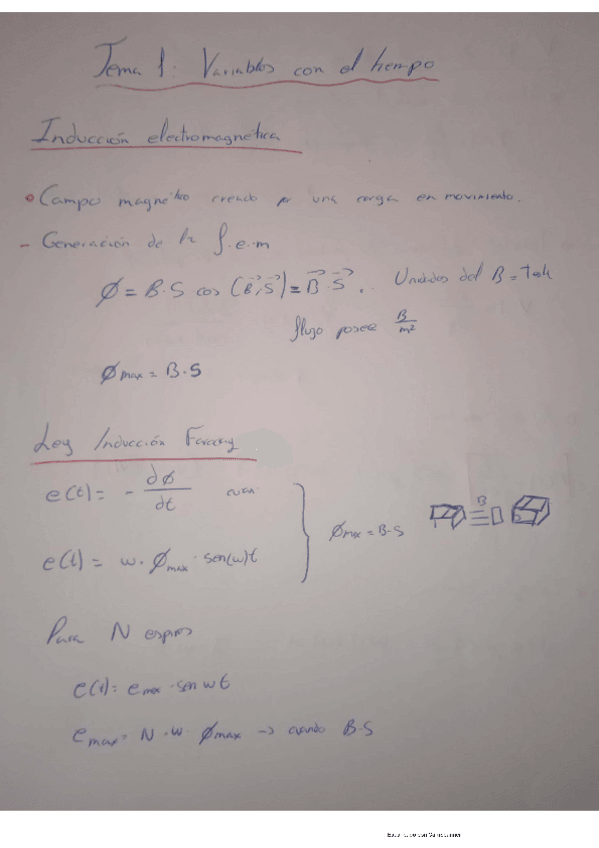 Tema 1: Variables con el tiempo
Inducción electromagnética
• Campo magnético creado por una carga en movimiento.
- Generación de la f.e.m
Ø = B·S cos (B,S) = B·S . Unidades del B = Tesla
flujo posee B/m²
Ømax = B·S
Ley Inducción Faraday
e(t) = - dØ/dt
e(t) = w · Ømax · sen(w)t
Ømax = B·S
B
Para N espiras
e(t) = emax · sen wt
emax = N · w · Ømax → cuando B·S